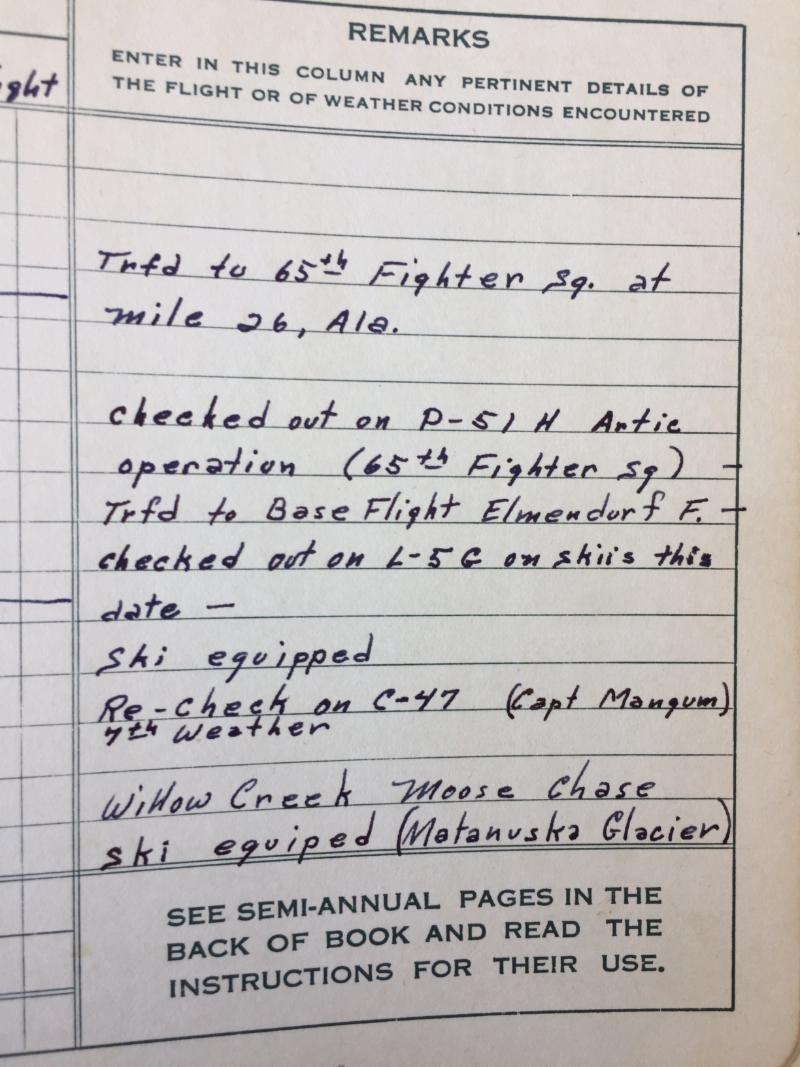 REMARKS
ENTER IN THIS COLUMN ANY PERTINENT DETAILS OF
THE FLIGHT OR OF WEATHER CONDITIONS ENCOUNTERED
ght
Trfd to 65th Fighter Sq. at
mile 26, Ala.
checked out on P-51 H Artic
operation (65th Fighter Sq) —
Trfd to Base Flight Elmendorf F. —
checked out on L-5 G on skiis this
date —
Ski equipped
Re-check on C-47 (Capt Mangum)
7th Weather
Willow Creek Moose Chase
ski equiped (Matanuska Glacier)
SEE SEMI-ANNUAL PAGES IN THE
BACK OF BOOK AND READ THE
INSTRUCTIONS FOR THEIR USE.